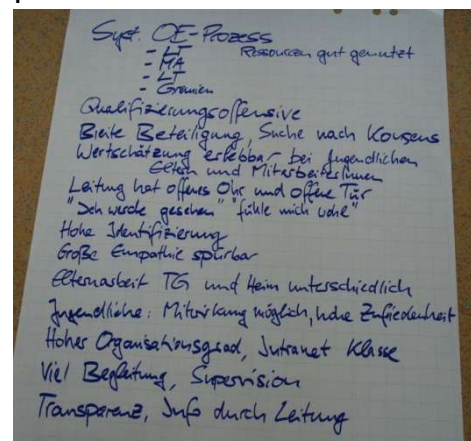 Syst. OE-Prozess
- LT Ressourcen gut genutzt
- MA
- LT
- Gremien
Qualifizierungsoffensive
Breite Beteiligung, Suche nach Konsens
Wertschätzung erlebbar bei Jugendlichen
Eltern und MitarbeiterInnen
Leitung hat offenes Ohr und offene Tür
"Ich werde gesehen" "fühle mich wohl"
Hohe Identifizierung
Große Empathie spürbar
Elternarbeit TG und Heim unterschiedlich
Jugendliche: Mitwirkung möglich, hohe Zufriedenheit
Hoher Organisationsgrad, Intranet Klasse
Viel Begleitung, Supervision
Transparenz, Info durch Leitung